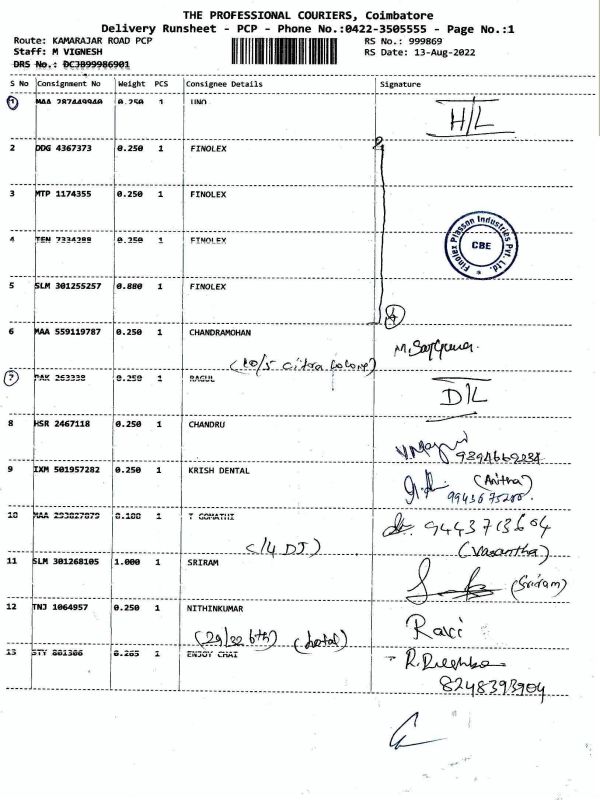 THE PROFESSIONAL COURIERS, Coimbatore
Delivery Runsheet - PCP - Phone No.:0422-3505555 - Page No.:1
Route: KAMARAJAR ROAD PCP
RS No.: 999869
Staff: M VIGNESH
RS Date: 13-Aug-2022
DRS No.: DCJB99986901
S No Consignment No Weight PCS Consignee Details Signature
1 MAA 287449940 0.250 1 UNO H/L
2 DDG 4367373 0.250 1 FINOLEX
3 MTP 1174355 0.250 1 FINOLEX
4 TEN 7334288 0.250 1 FINOLEX
Finolex Plasson Industries Pvt. Ltd. * CBE
5 SLM 301255257 0.880 1 FINOLEX
6 MAA 559119787 0.250 1 CHANDRAMOHAN
7 PAK 263338 0.250 1 RAGUL D/L
8 HSR 2467118 0.250 1 CHANDRU
9 IXM 501957282 0.250 1 KRISH DENTAL (Anitha)
10 MAA 293827879 0.100 1 T GOMATHI 9443713604
(Vasantha)
11 SLM 301268105 1.000 1 SRIRAM (Sriram)
12 TNJ 1064957 0.250 1 NITHINKUMAR Ravi
13 STY 801306 0.265 1 ENJOY CHAI
8248393904